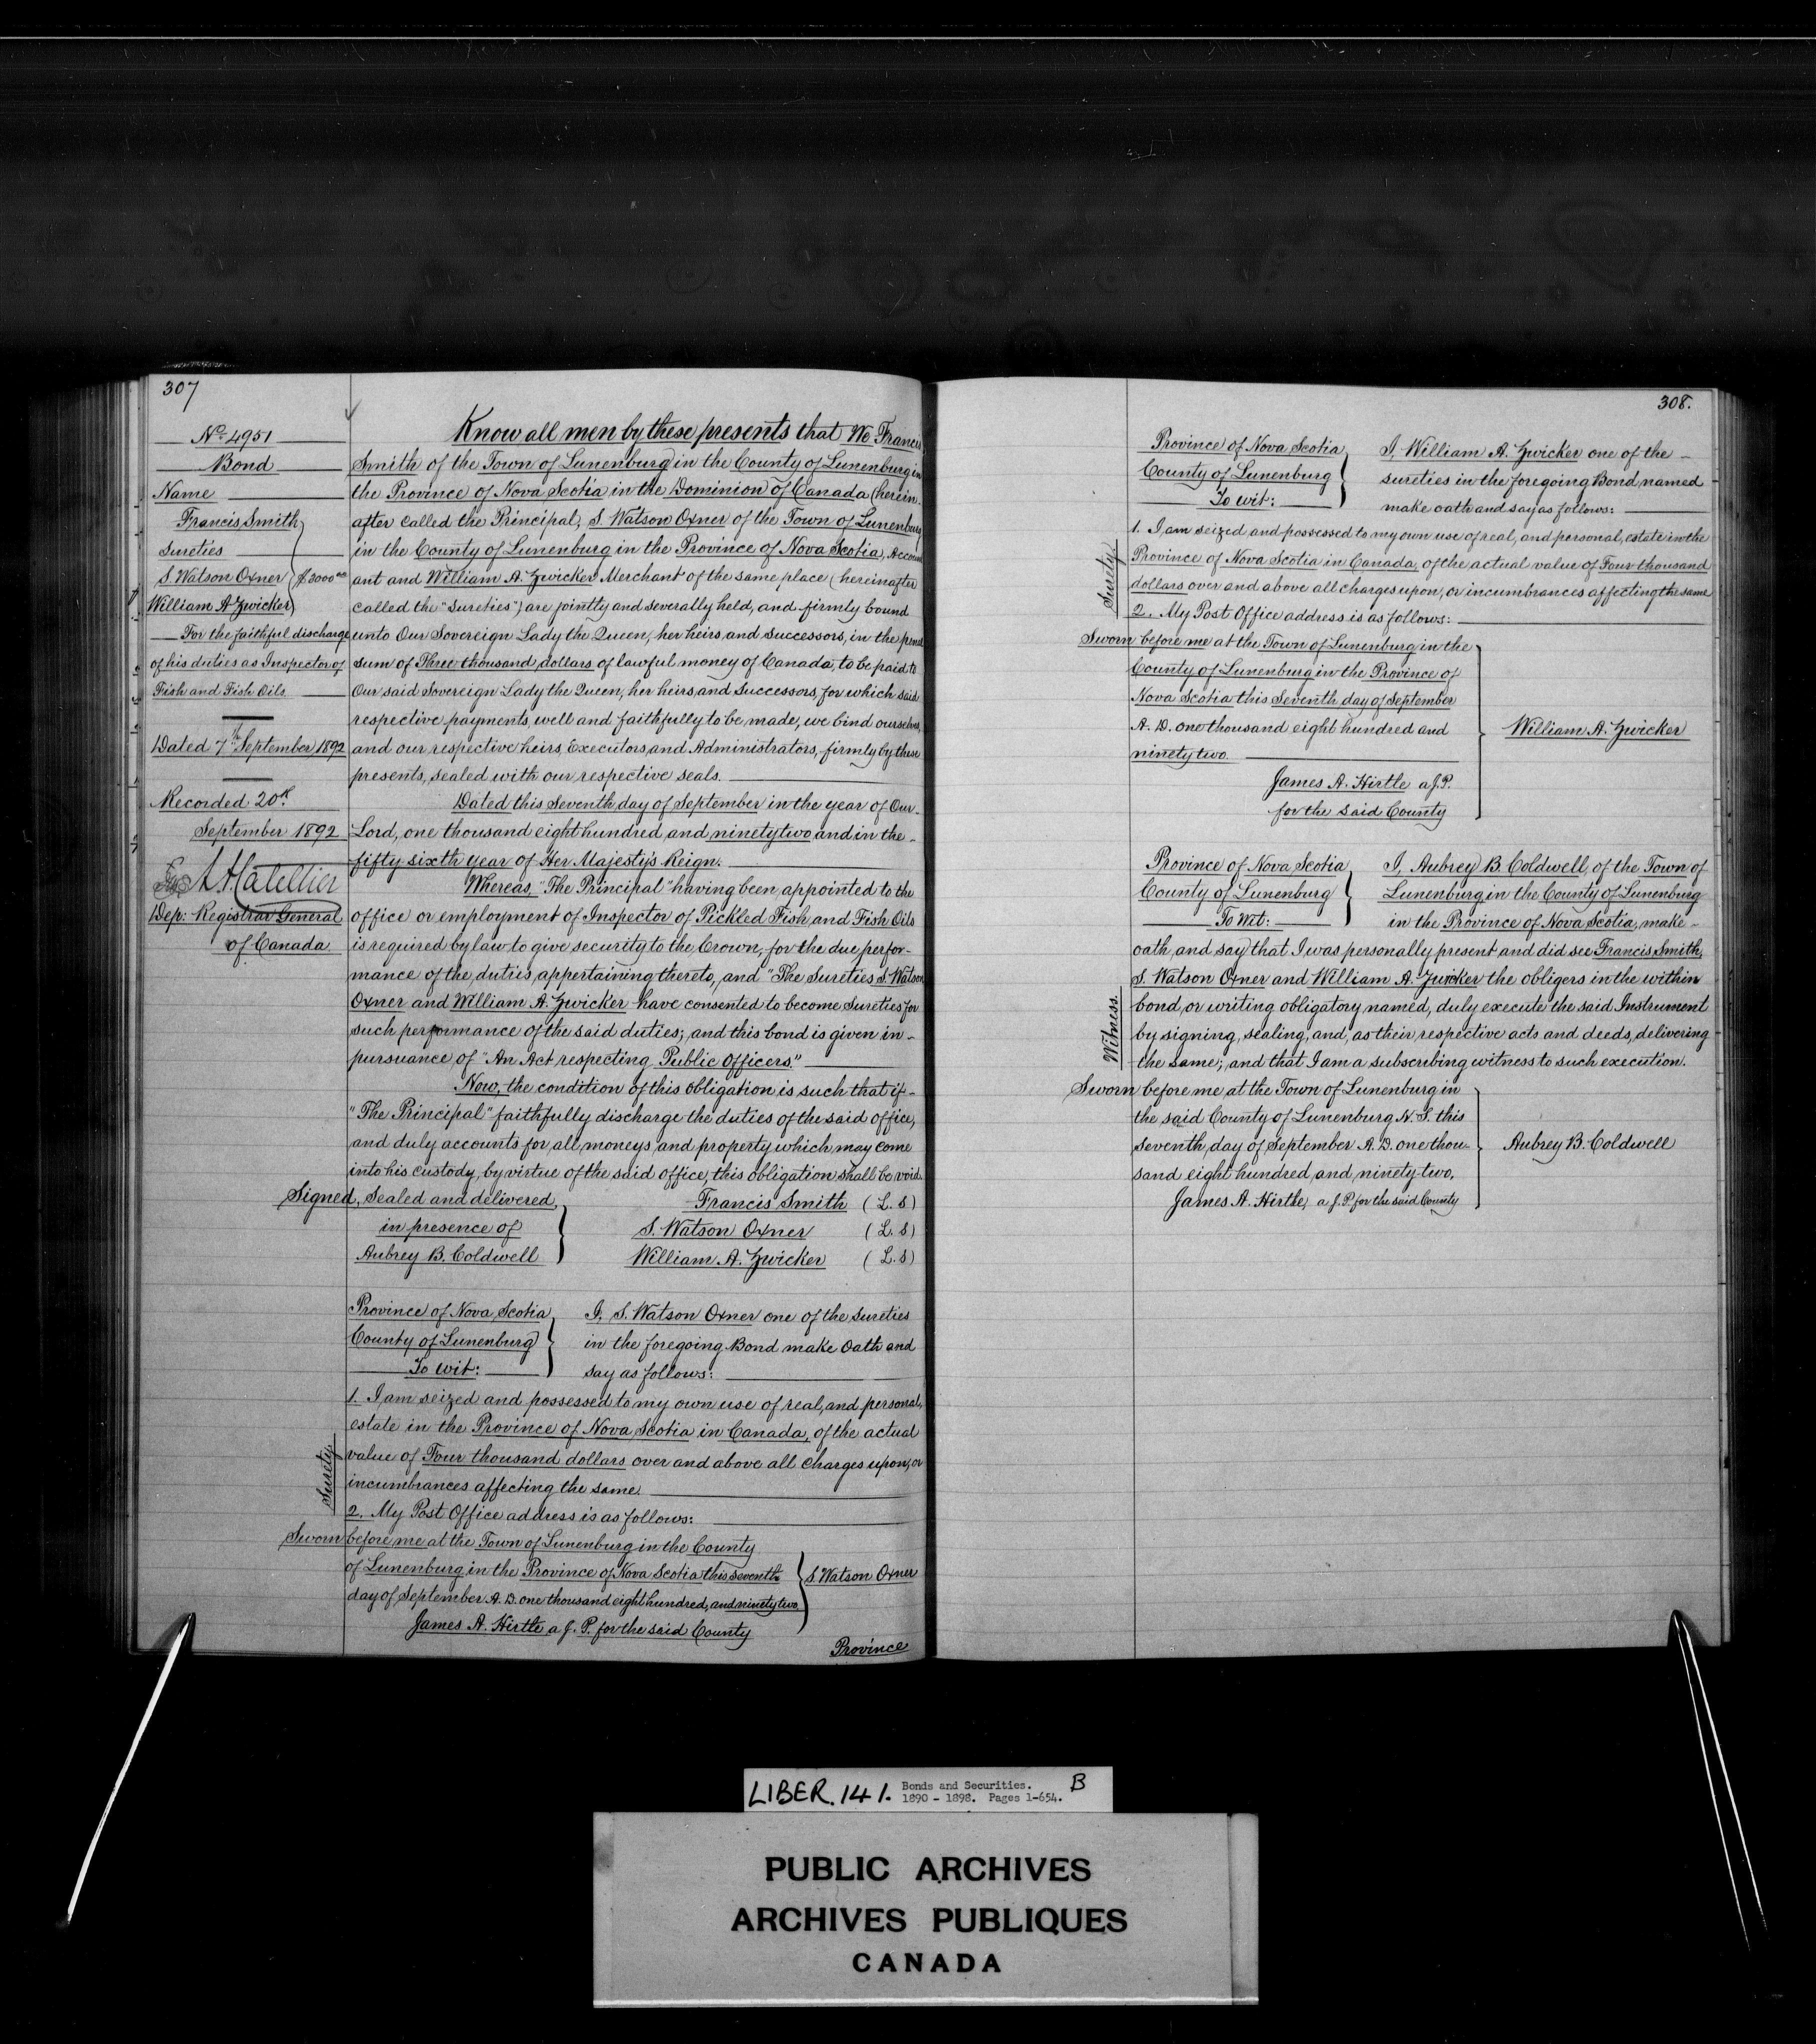 307
No. 4951
Bond
Name
Francis Smith
Sureties
S. Watson Oxner
William A Zwicker
For the faithful discharge
of his duties as Inspector of
Fish and Fish Oils.
Dated 7th September 1892
Recorded 20th
September 1892
Dep: Registrar General
of Canada
Know all men by these presents that We Francis
Smith of the Town of Lunenburg in the County of Lunenburg in
the Province of Nova Scotia in the Dominion of Canada (herein-
after called the Principal, S. Watson Oxner of the Town of Lunenburg
in the County of Lunenburg in the Province of Nova Scotia, Account
ant and William A. Zwicker Merchant of the same place (hereinafter
called the "Sureties") are jointly and severally held, and firmly bound
unto Our Sovereign Lady the Queen, her heirs, and Successors, in the penal
sum of Three thousand dollars of lawful money of Canada, to be paid to
Our said Sovereign Lady the Queen, her heirs, and Successors, for which said
respective payments, well and faithfully to be made, we bind ourselves,
and our respective heirs, Executors, and Administrators, firmly by these
presents, sealed with our respective seals.
Dated this Seventh day of September in the year of Our
Lord, one thousand eight hundred and ninety two and in the
fifty sixth year of Her Majesty's Reign.
Whereas, "The Principal" having been appointed to the
office or employment of Inspector of Pickled Fish and Fish Oils
is required by law to give security to the Crown, for the due perfor-
mance of the duties, appertaining thereto, and "The Sureties S. Watson
Oxner and William A. Zwicker have consented to become Sureties for
such performance of the said duties; and this bond is given in
pursuance of "An Act respecting Public Officers."
Now, the condition of this obligation is such that if
"The Principal" faithfully discharge the duties of the said office,
and duly accounts for all moneys and property which may come
into his custody, by virtue of the said office, this obligation shall be void.
Signed, Sealed and delivered, Francis Smith (L. S)
in presence of S. Watson Oxner (L. S)
Aubrey B. Coldwell William A. Zwicker (L. S)
Province of Nova Scotia I, S. Watson Oxner one of the Sureties
County of Lunenburg in the foregoing Bond make Oath and
To wit: say as follows:
1. I am seized and possessed to my own use of real, and personal,
estate in the Province of Nova Scotia in Canada, of the actual
value of Four thousand dollars over and above all charges upon, or
incumbrances affecting the same.
Surety.
2. My Post Office address is as follows:
Sworn before me at the Town of Lunenburg in the County
of Lunenburg in the Province of Nova Scotia this seventh S Watson Oxner
day of September A. D. one thousand eight hundred, and ninety two
James A. Hirtle a J. P. for the said County
Province
308.
Province of Nova Scotia I, William A. Zwicker one of the
County of Lunenburg sureties in the foregoing Bond named
To wit: make oath and say as follows:
1. I am seized and possessed to my own use of real, and personal, estate in the
Province of Nova Scotia in Canada, of the actual value of Four thousand
dollars over and above all charges upon, or incumbrances affecting the same
Surety.
2. My Post Office address is as follows:
Sworn before me at the Town of Lunenburg in the
County of Lunenburg in the Province of
Nova Scotia this Seventh day of September
A. D. one thousand eight hundred and William A. Zwicker
ninety two.
James A. Hirtle a J.P.
for the said County
Province of Nova Scotia I, Aubrey B. Coldwell, of the Town of
County of Lunenburg Lunenburg in the County of Lunenburg
To Wit: in the Province of Nova Scotia, make
oath, and say that I was personally present and did see Francis Smith,
S. Watson Oxner and William A. Zwicker the obligers in the within
bond, or writing obligatory named, duly execute the said Instrument
by signing, sealing, and, as their respective acts and deeds, delivering
the same; and that I am a subscribing witness to such execution.
Witness.
Sworn before me at the Town of Lunenburg in
the said County of Lunenburg N. S. this
seventh day of September A. D. one thou- Aubrey B. Coldwell
sand eight hundred, and ninety two.
James A. Hirtle, a J. P. for the said County
LIBER. 141. Bonds and Securities. B
1890 - 1898. Pages 1-654.
PUBLIC ARCHIVES
ARCHIVES PUBLIQUES
CANADA